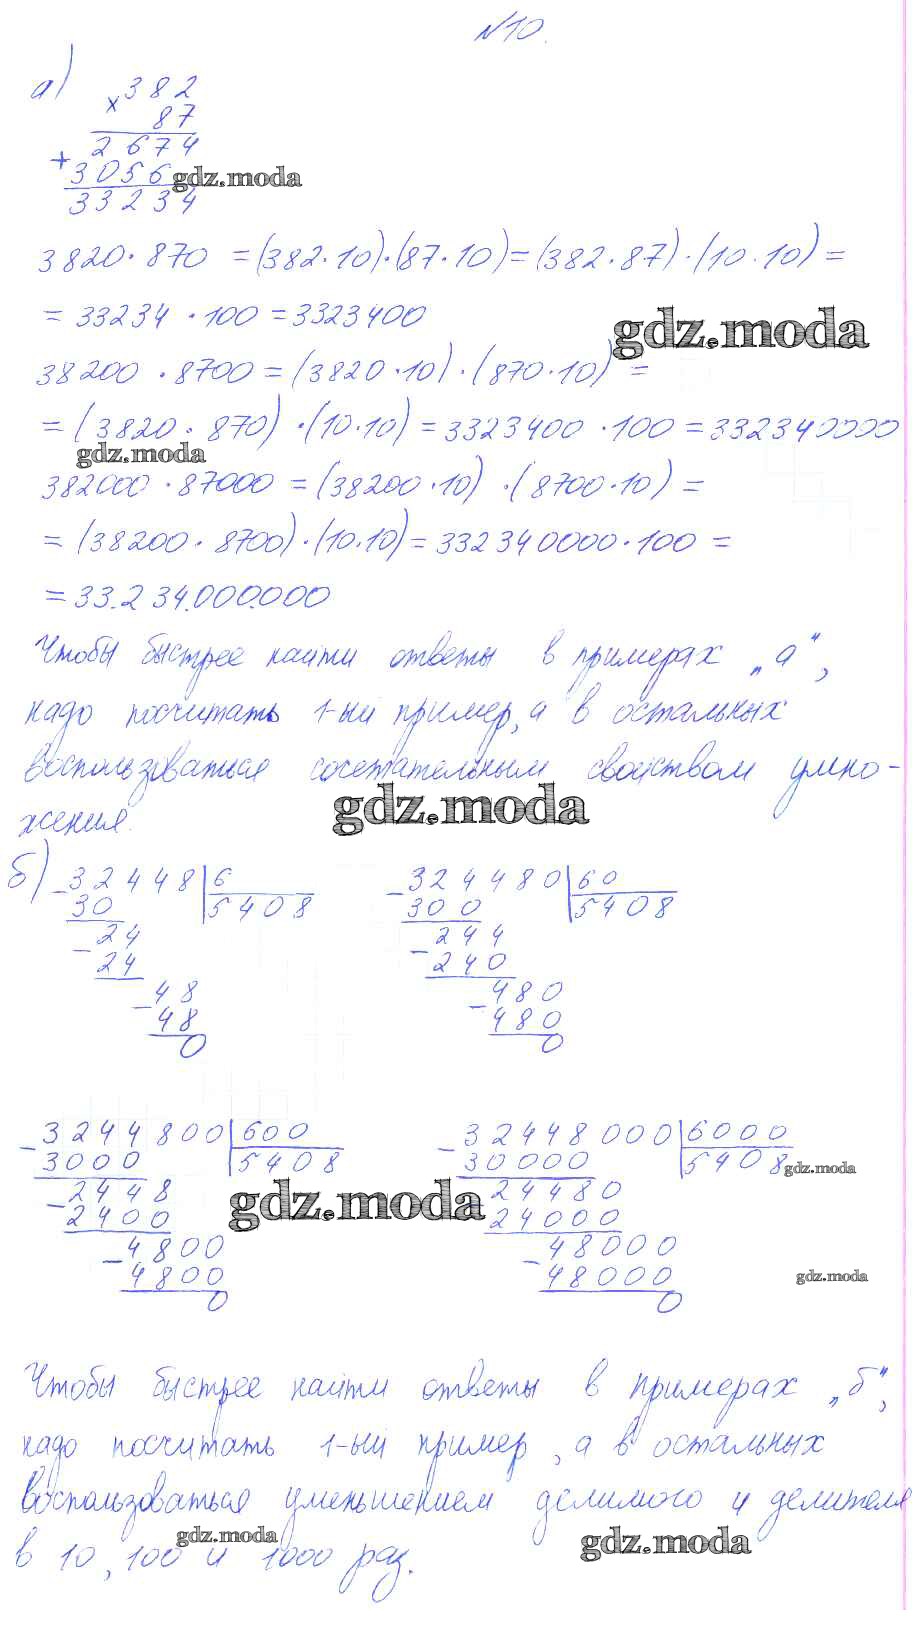 №10.
а) × 382
87
+ 2674
3056 gdz.moda
33234
3820·870 =(382·10)·(87·10)=(382·87)·(10·10)=
= 33234 ·100 =3323400
gdz.moda
38200 ·8700 =(3820·10)·(870·10) =
=(3820· 870) ·(10·10) = 3323400 ·100 =332340000
gdz.moda
382000 ·87000 =(38200·10) ·(8700·10) =
=(38200· 8700)·(10·10)= 332340000·100 =
=33.234.000.000
Чтобы быстрее найти ответы в примерах „а“,
надо посчитать 1-ый пример, а в остальных
воспользоваться сочетательным свойством умно-
gdz.moda
жения.
б) - 32448 6 - 324480 60
30 5408 300 5408
- 24 - 244
24 240
- 48 - 480
48 480
0 0
- 3244800 600 - 32448000 6000
3000 5408 30000 5408 gdz.moda
- 2448 24480
2400 gdz.moda 24000
- 4800 - 48000
4800 48000 gdz.moda
0 0
Чтобы быстрее найти ответы в примерах „б“,
надо посчитать 1-ый пример, а в остальных
воспользоваться уменьшением делимого и делителя
gdz.moda gdz.moda
в 10, 100 и 1000 раз.